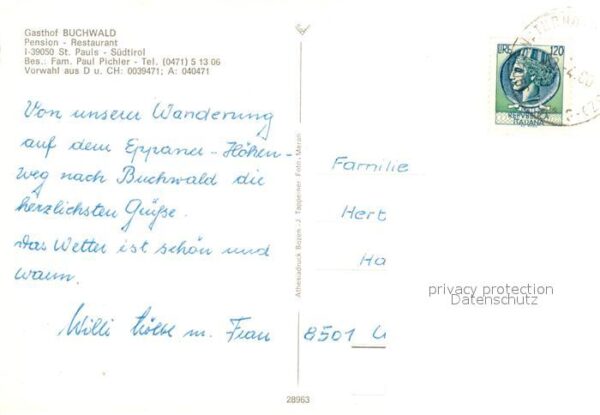 Gasthof BUCHWALD
Pension - Restaurant
I-39050 St. Pauls - Südtirol
Bes.: Fam. Paul Pichler - Tel. (0471) 5 13 06
Vorwahl aus D u. CH: 0039471; A: 040471
Von unserer Wanderung
auf dem Eppaner-Höhen-
weg nach Buchwald die
herzlichsten Grüße.
Das Wetter ist schön und
warm.
Willi m. Frau
Athesiadruck Bozen - J. Tappeiner Foto, Meran
28963
LIRE 120
ITALIANA
Familie
Herb
Ha
8501
privacy protection
Datenschutz